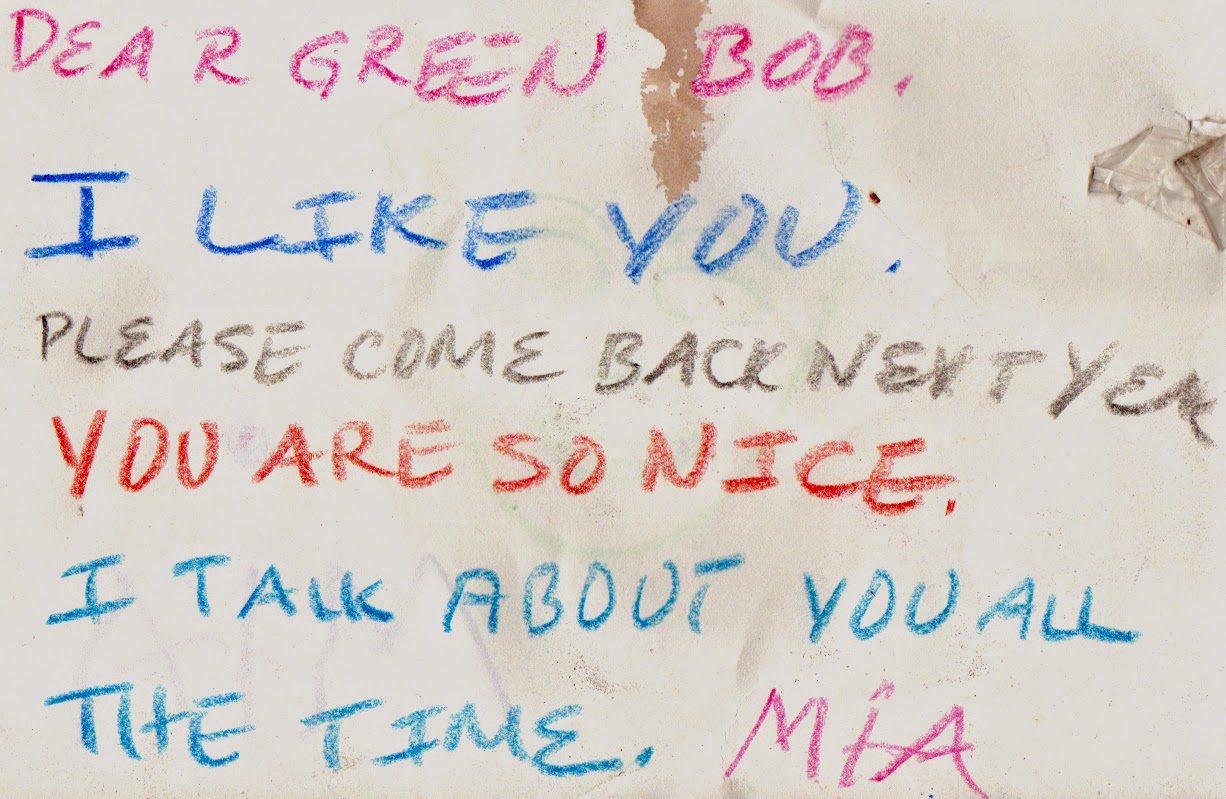 DEAR GREEN BOB.
I LIKE YOU.
PLEASE COME BACK NEXT YEAR
YOU ARE SO NICE.
I TALK ABOUT YOU ALL
THE TIME. MIA